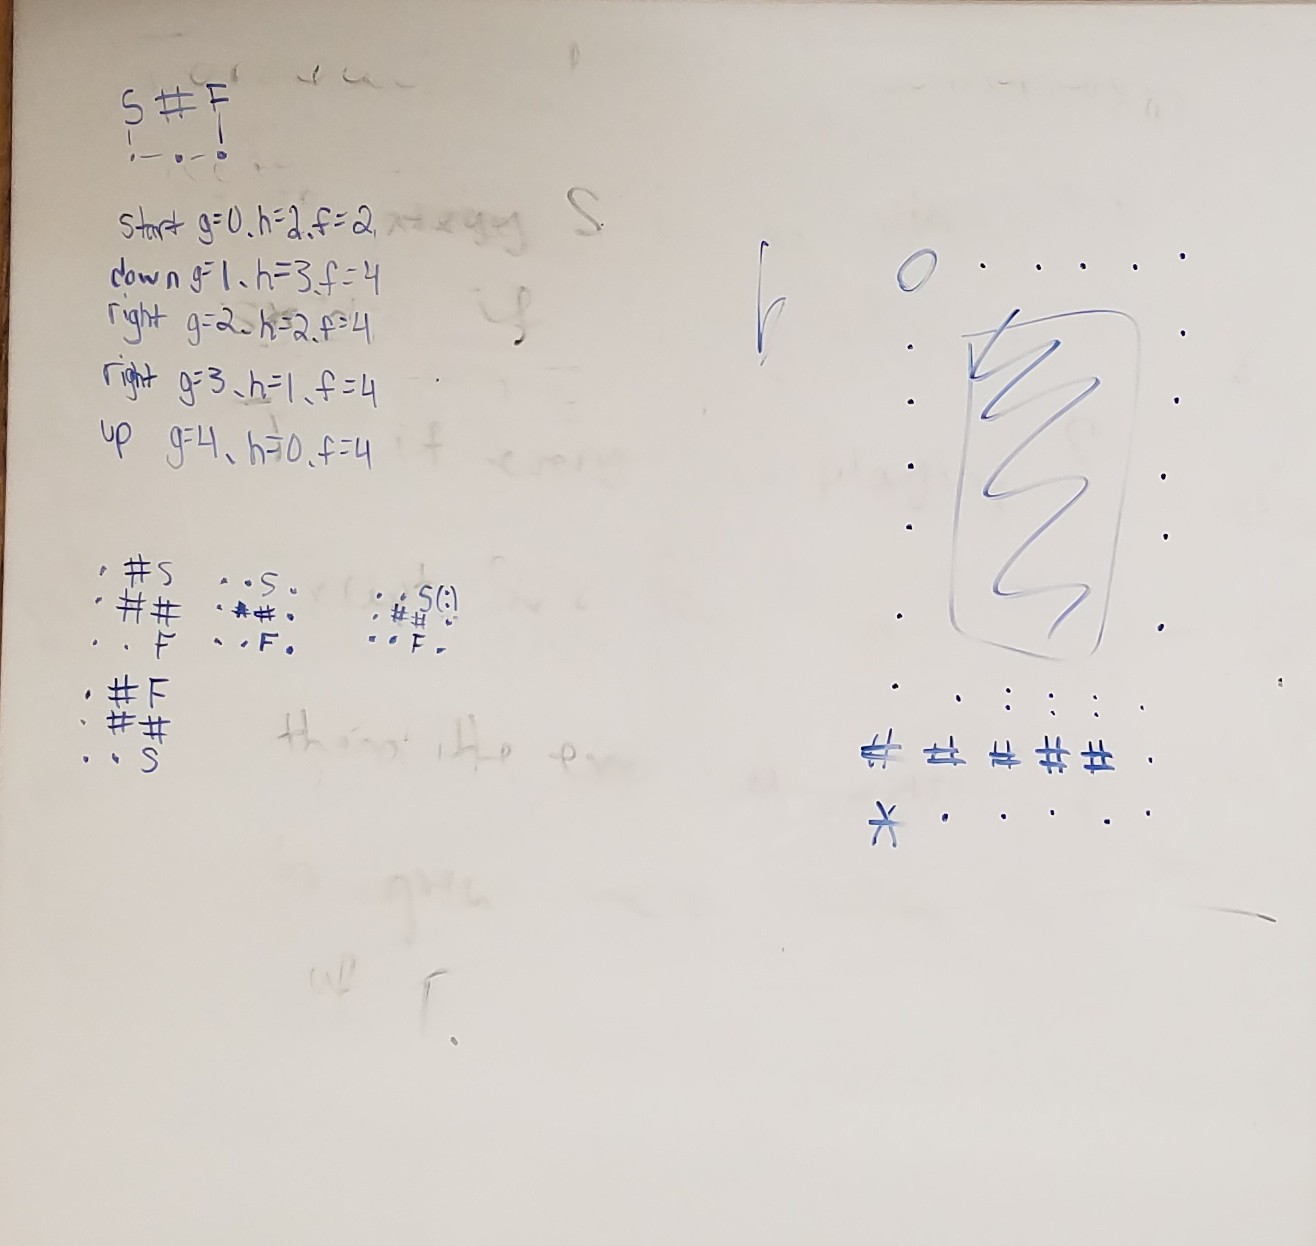 S # F
. - . - .
start g=0, h=2, f=2
down g=1, h=3, f=4
right g=2, h=2, f=4
right g=3, h=1, f=4
up g=4, h=0, f=4
. # S
. # #
. . F
. . S .
. # # .
. . F .
. . S (:)
. # # .
. . F .
. # F
. # #
. . S
O . . . . .
. .
. .
. .
. .
. .
. . : : : .
# # # # # .
* . . . . .